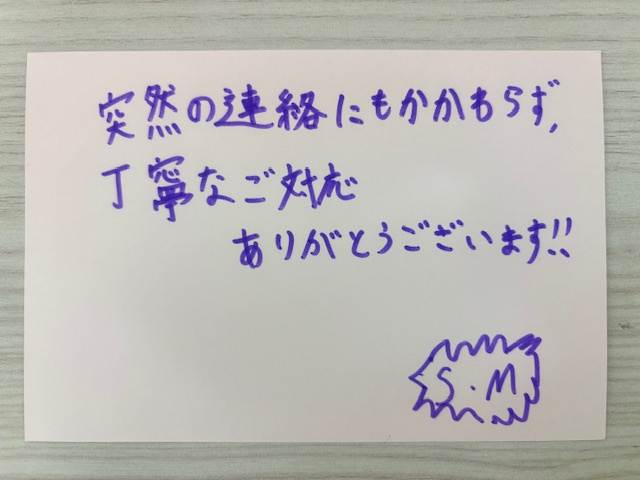 突然の連絡にもかかわらず,
丁寧なご対応
ありがとうございます!!
S.M